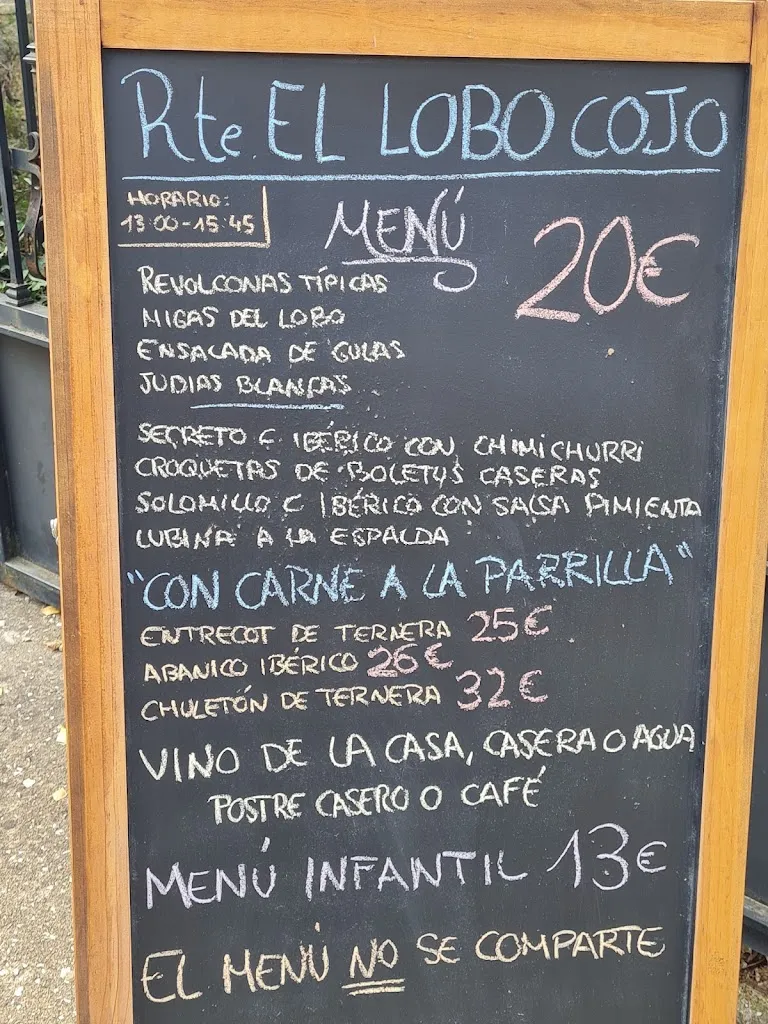 Rte. EL LOBO COJO
HORARIO:
13:00-15:45
MENÚ
20€
REVOLCONAS TÍPICAS
MIGAS DEL LOBO
ENSALADA DE GULAS
JUDIAS BLANCAS
SECRETO C IBÉRICO CON CHIMICHURRI
CROQUETAS DE BOLETUS CASERAS
SOLOMILLO C IBÉRICO CON SALSA PIMIENTA
LUBINA A LA ESPALDA
"CON CARNE A LA PARRILLA"
ENTRECOT DE TERNERA 25€
ABANICO IBÉRICO 26€
CHULETÓN DE TERNERA 32€
VINO DE LA CASA, CASERA O AGUA
POSTRE CASERO O CAFÉ
MENÚ INFANTIL 13€
EL MENÚ NO SE COMPARTE